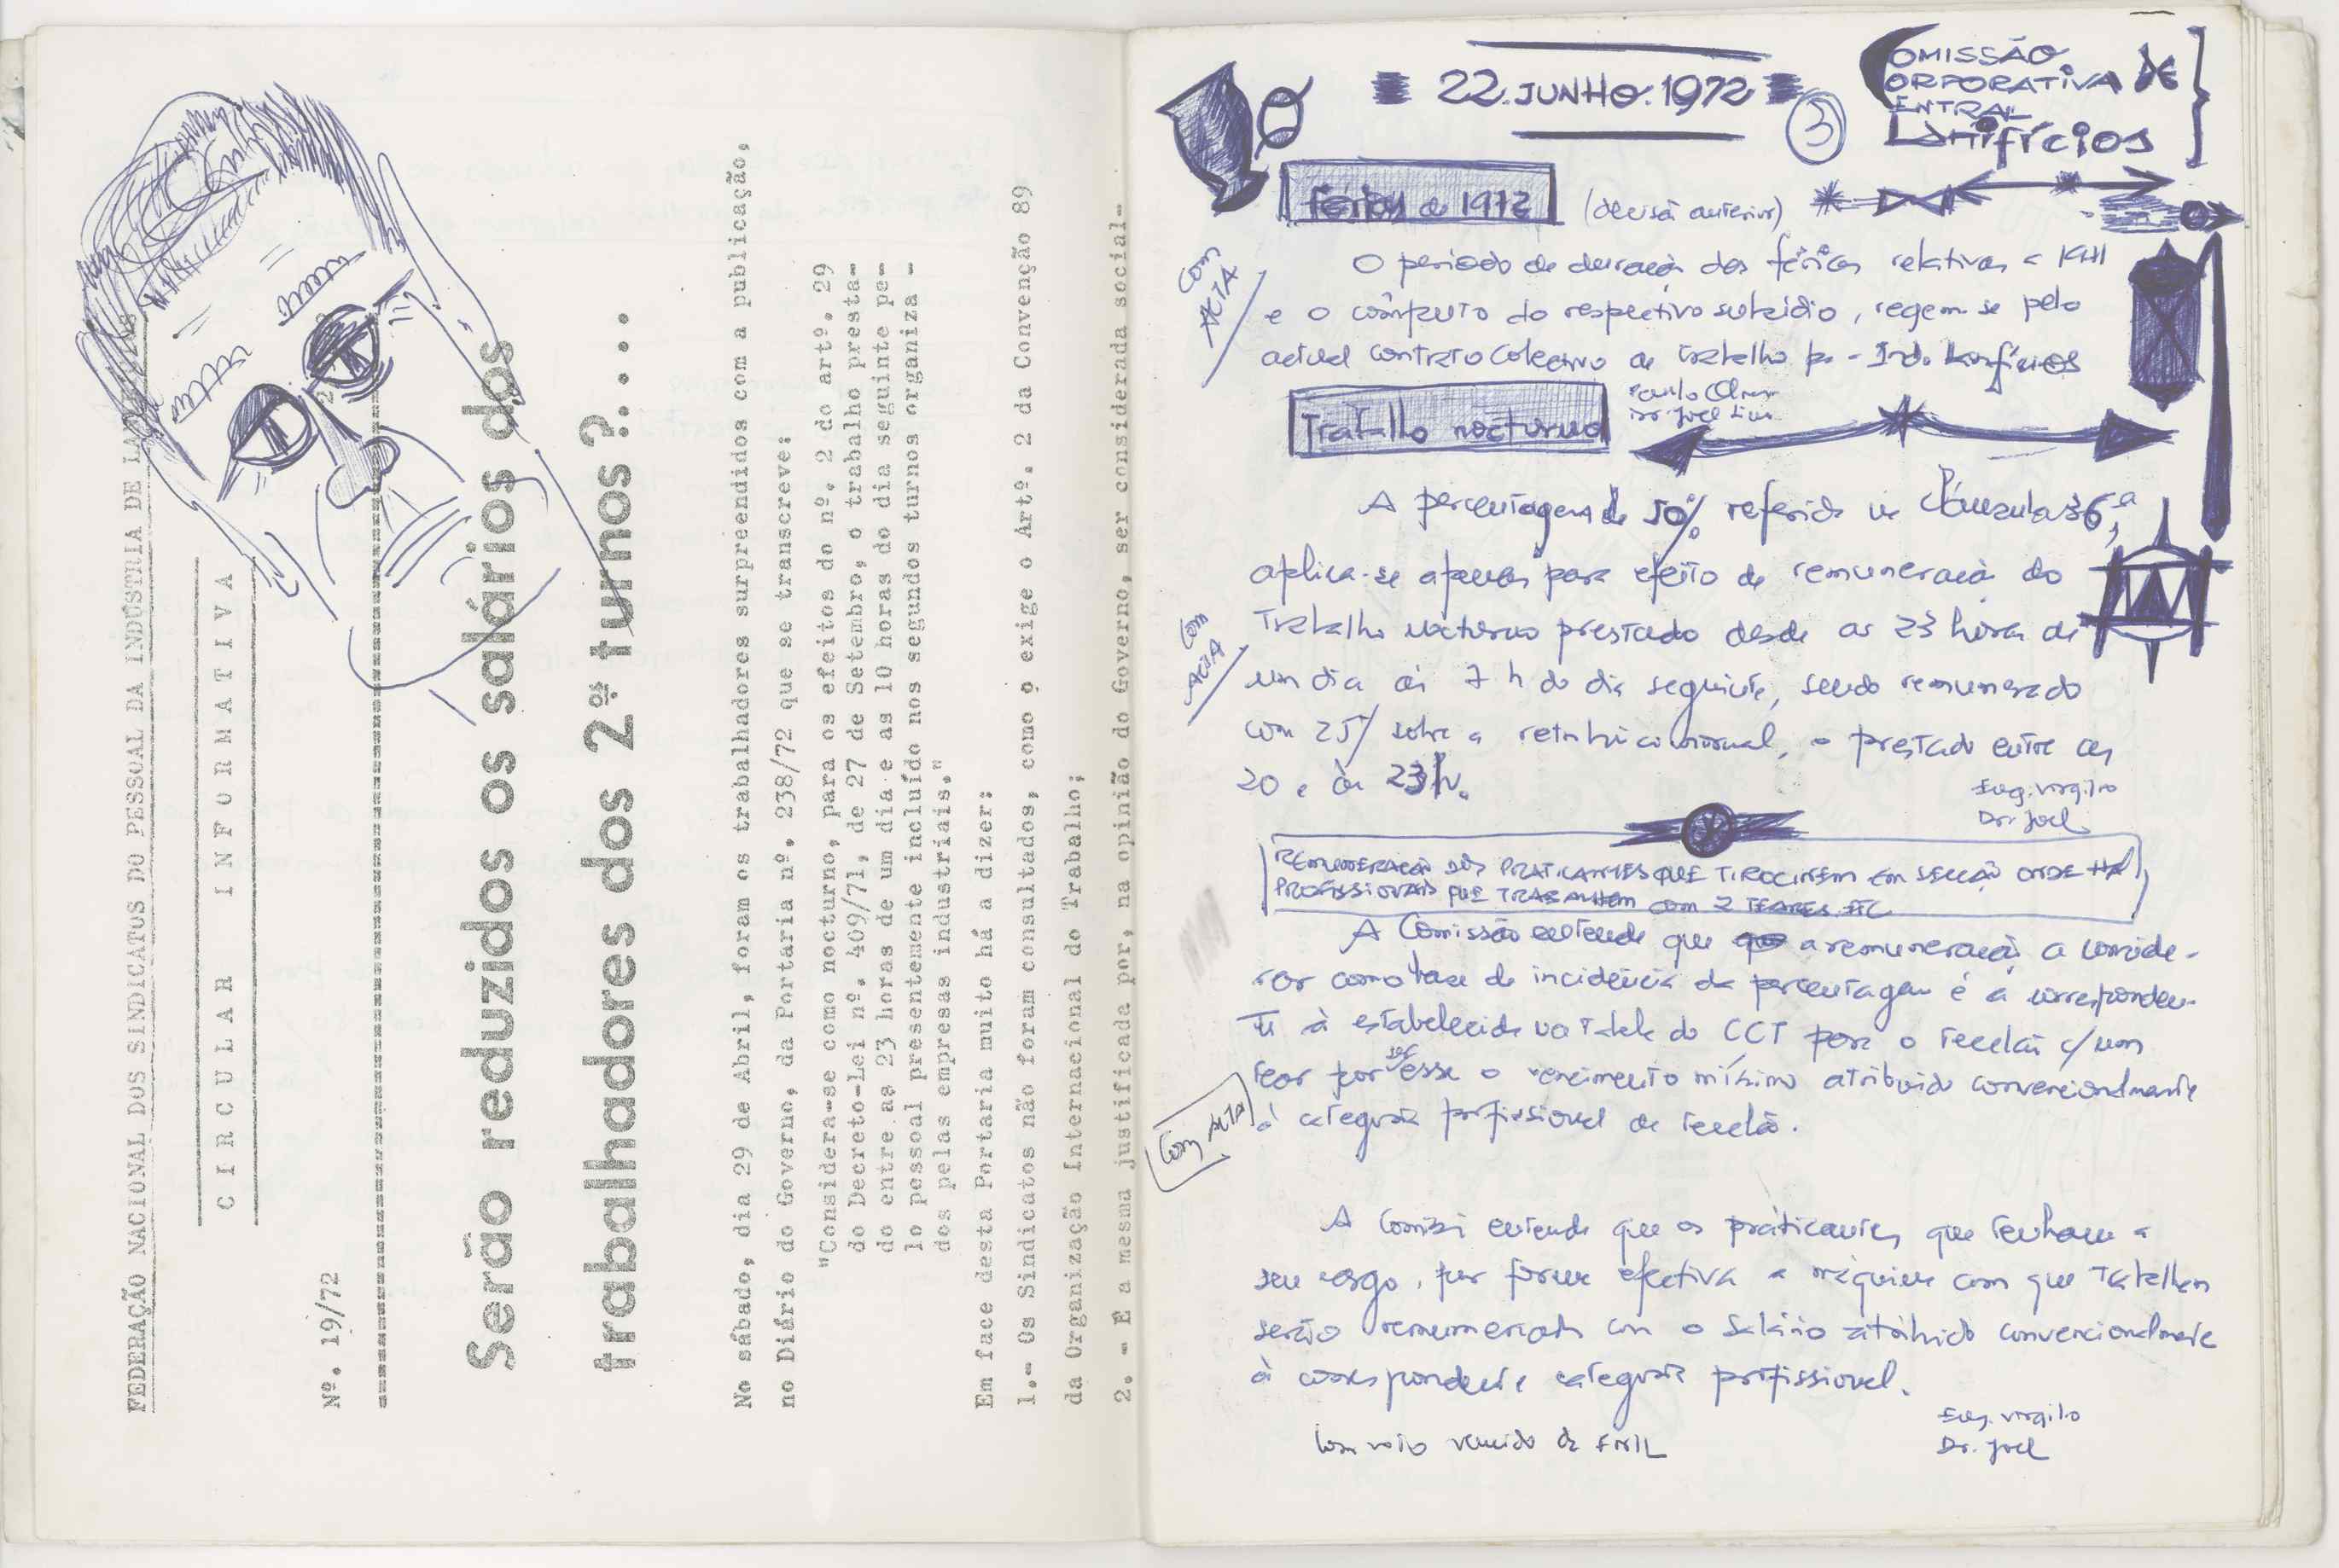 FEDERAÇÃO NACIONAL DOS SINDICATOS DO PESSOAL DA INDÚSTRIA DE
CIRCULAR INFORMATIVA
Nº. 19/72
Serão reduzidos os salários dos
trabalhadores dos 2ºs turnos?.....
No sábado, dia 29 de Abril, foram os trabalhadores surpreendidos com a publicação,
no Diário do Governo, da Portaria nº. 238/72 que se transcreve:
"Considera-se como nocturno, para os efeitos do nº. 2 do artº. 29
do Decreto-Lei nº. 409/71, de 27 de Setembro, o trabalho presta-
do entre as 23 horas de um dia e as 10 horas do dia seguinte pe-
lo pessoal presentemente incluído nos segundos turnos organiza -
dos pelas empresas industriais."
Em face desta Portaria muito há a dizer:
1.- Os Sindicatos não foram consultados, como o exige o Artº. 2 da Convenção 89
da Organização Internacional do Trabalho;
2. - E a mesma justificada por, na opinião do Governo, ser considerada social-
22.JUNHO.1972
3
COMISSÃO
CORPORATIVA
CENTRAL
LANIFÍCIOS
Férias de 1972 (decisã anterior)
Com ACTA
O periodo de duração das férias relativas a
e o cômputo do respectivo subsídio, regem-se pelo
actual Contrato Colectivo de Trabalho p. - Ind. Lanifícios
Trabalho nocturno
Dr. Joel
A percentagem de 50% referida na Cláusula 36ª,
Com ACTA
aplica-se apenas para efeito de remuneração do
Trabalho nocturno prestado desde as 23 horas de
um dia às 7 h do dia seguinte, sendo remunerado
com 25% sobre a retribuição normal, o prestado entre as
20 e às 23 h.
Eng. Virgílio
Dr. Joel
REMUNERAÇÃO DOS PRATICANTES QUE TIROCINEM EM SECÇÃO ONDE HÁ
PROFISSIONAIS QUE TRABALHEM COM 2 TEARES ETC
A Comissão entende que a remuneração a conside-
rar como base de incidência da percentagem é a corresponden-
te à estabelecida na tabela do CCT para o tecelão c/ um
tear por ser esse o vencimento mínimo atribuido convencionalmente
à categoria profissional de tecelão.
Com ACTA
A Comissã entende que os praticantes que tenham a
seu cargo, por forma efectiva a máquina com que trabalham
serão remunerados com o salário atribuído convencionalmente
à correspondente categoria profissional.
Com voto vencido da FNIL
Eng. Virgílio
Dr. Joel